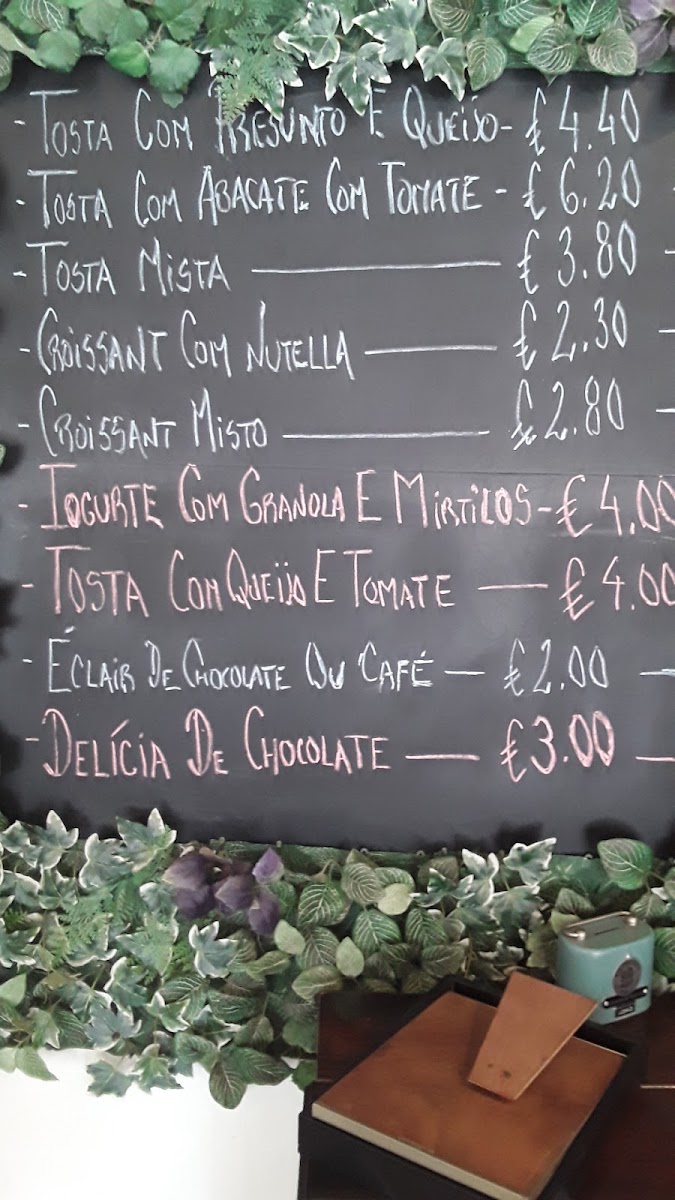 - Tosta Com Presunto E Queijo - € 4.40
- Tosta Com Abacate Com Tomate - € 6.20
- Tosta Mista — € 3.80
- Croissant Com Nutella — € 2.30
- Croissant Misto — € 2.80
- Iogurte Com Granola E Mirtilos - € 4.00
- Tosta Com Queijo E Tomate — € 4.00
- Éclair De Chocolate Ou Café — € 2.00
- Delícia De Chocolate — € 3.00